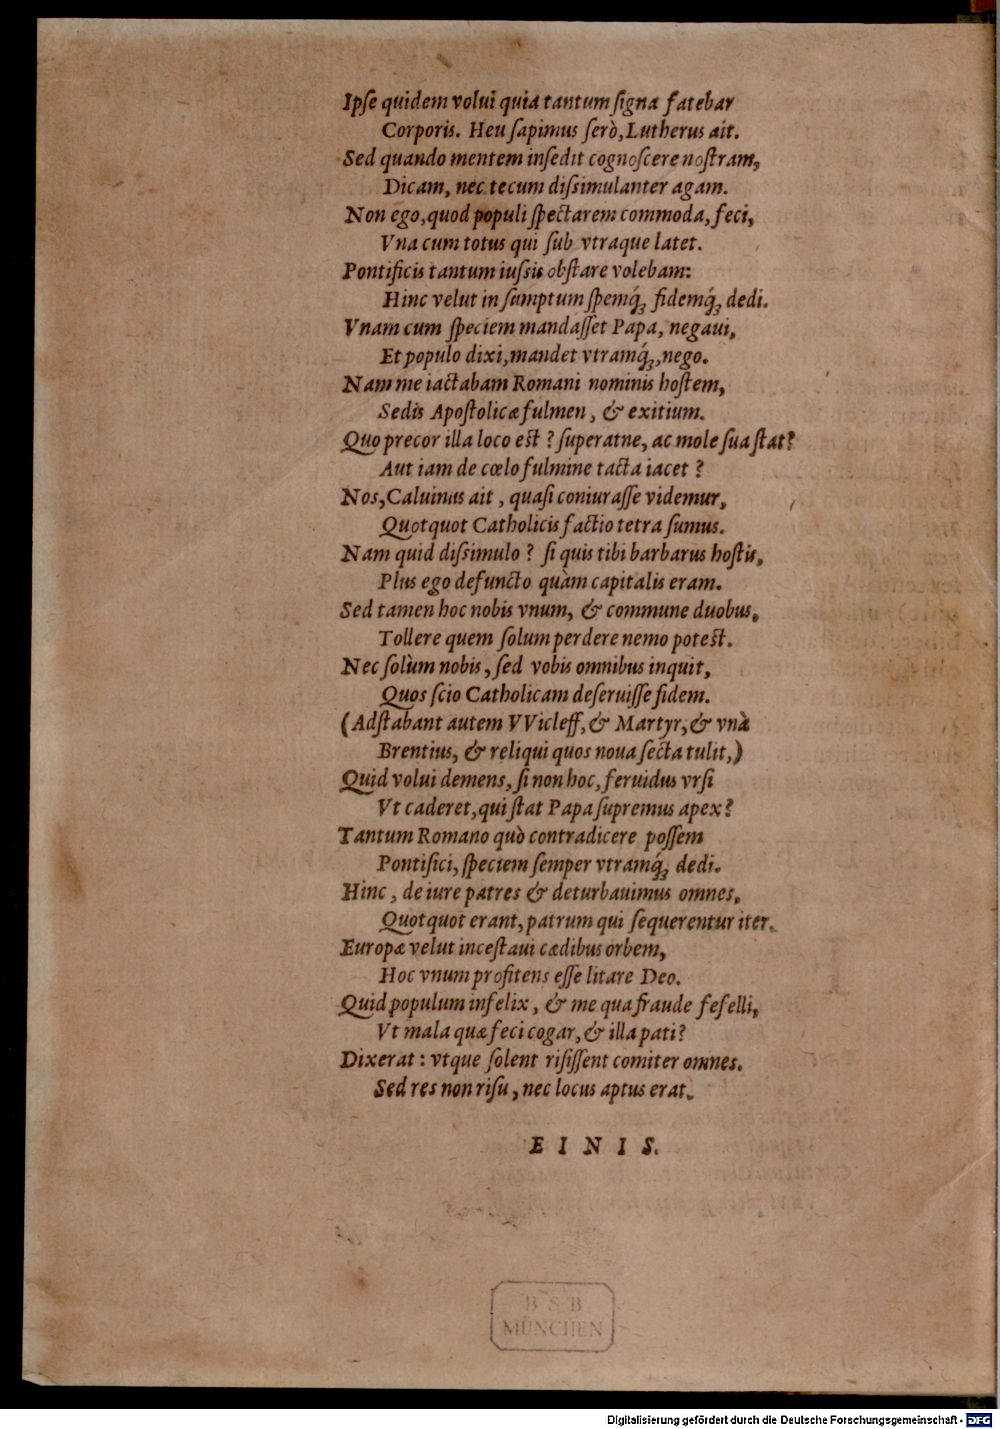 Ipſe quidem volui quia tantum ſigna fatebar
Corporis. Heu ſapimus ſerò, Lutherus ait.
Sed quando mentem inſedit cognoſcere noſtram,
Dicam, nec tecum diſsimulanter agam.
Non ego, quod populi ſpectarem commoda, feci,
Vna cum totus qui ſub vtraque latet.
Pontificis tantum iuſsis obſtare volebam:
Hinc velut in ſumptum ſpemq́ꝫ fidemq́ꝫ dedi.
Vnam cum ſpeciem mandaſſet Papa, negaui,
Et populo dixi, mandet vtramq́ꝫ, nego.
Nam me iactabam Romani nominis hoſtem,
Sedis Apoſtolicæ fulmen, & exitium.
Quo precor illa loco eſt? ſuperatne, ac mole ſua ſtat?
Aut iam de cœlo fulmine tacta iacet?
Nos, Caluinus ait, quaſi coniuraſſe videmur,
Quotquot Catholicis factio tetra ſumus.
Nam quid diſsimulo? ſi quis tibi barbarus hoſtis,
Plus ego defuncto quàm capitalis eram.
Sed tamen hoc nobis vnum, & commune duobus,
Tollere quem ſolum perdere nemo poteſt.
Nec ſolùm nobis, ſed vobis omnibus inquit,
Quos ſcio Catholicam deſeruiſſe fidem.
(Adſtabant autem VVicleff, & Martyr, & vnà
Brentius, & reliqui quos noua ſecta tulit,)
Quid volui demens, ſi non hoc, feruidus vrſi
Vt caderet, qui ſtat Papa ſupremus apex?
Tantum Romano quò contradicere poſſem
Pontifici, ſpeciem ſemper vtramq́ꝫ dedi.
Hinc, de iure patres & deturbauimus omnes,
Quotquot erant, patrum qui ſequerentur iter.
Europæ velut inceſtaui cædibus orbem,
Hoc vnum profitens eſſe litare Deo.
Quid populum infelix, & me qua fraude fefelli,
Vt mala quæ feci cogar, & illa pati?
Dixerat: vtque ſolent riſiſſent comiter omnes.
Sed res non riſu, nec locus aptus erat.
EINIS.
B S B
MÜNCHEN
Digitalisierung gefördert durch die Deutsche Forschungsgemeinschaft - DFG